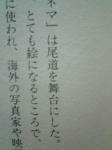 ネマ」は尾道を舞台にした。
とても絵になるところで、
に使われ、海外の写真家や映